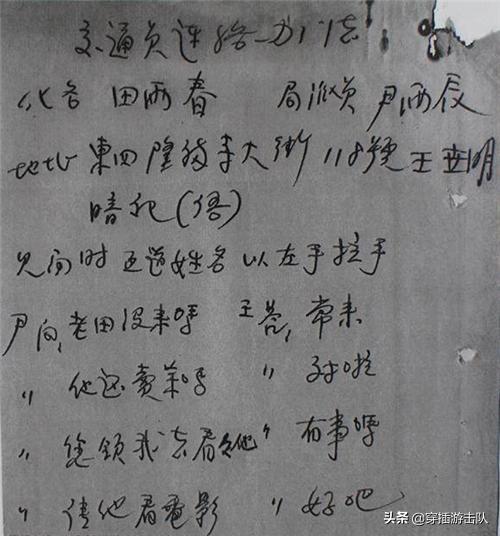 交通员连络办法
化名 田雨春 局派员 尹西辰
地址 東四隆福寺大街118號王世明
暗記(语)
见面时互道姓名以左手拉手
尹问,老田没来吗 王答,常来
〃 他还卖菜吗 〃 对啦
〃 您领我去看看他 〃 有事吗
〃 请他看電影 〃 好吧
头条 @穿插游击队